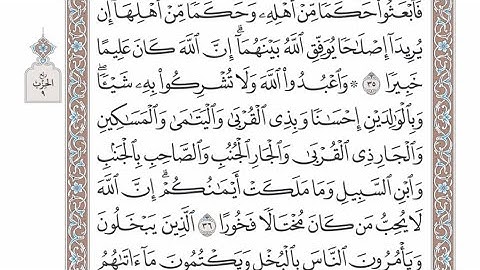 فَٱبْعَثُوا۟ حَكَمًا مِّنْ أَهْلِهِۦ وَحَكَمًا مِّنْ أَهْلِهَآ إِن
يُرِيدَآ إِصْلَٰحًا يُوَفِّقِ ٱللَّهُ بَيْنَهُمَآ ۗ إِنَّ ٱللَّهَ كَانَ عَلِيمًا
خَبِيرًا ٣٥ ۞ وَٱعْبُدُوا۟ ٱللَّهَ وَلَا تُشْرِكُوا۟ بِهِۦ شَيْـًٔا ۖ
وَبِٱلْوَٰلِدَيْنِ إِحْسَٰنًا وَبِذِى ٱلْقُرْبَىٰ وَٱلْيَتَٰمَىٰ وَٱلْمَسَٰكِينِ
وَٱلْجَارِ ذِى ٱلْقُرْبَىٰ وَٱلْجَارِ ٱلْجُنُبِ وَٱلصَّاحِبِ بِٱلْجَنۢبِ
وَٱبْنِ ٱلسَّبِيلِ وَمَا مَلَكَتْ أَيْمَٰنُكُمْ ۗ إِنَّ ٱللَّهَ
لَا يُحِبُّ مَن كَانَ مُخْتَالًا فَخُورًا ٣٦ ٱلَّذِينَ يَبْخَلُونَ
وَيَأْمُرُونَ ٱلنَّاسَ بِٱلْبُخْلِ وَيَكْتُمُونَ مَآ ءَاتَىٰهُمُ
ربع
الحزب
٩